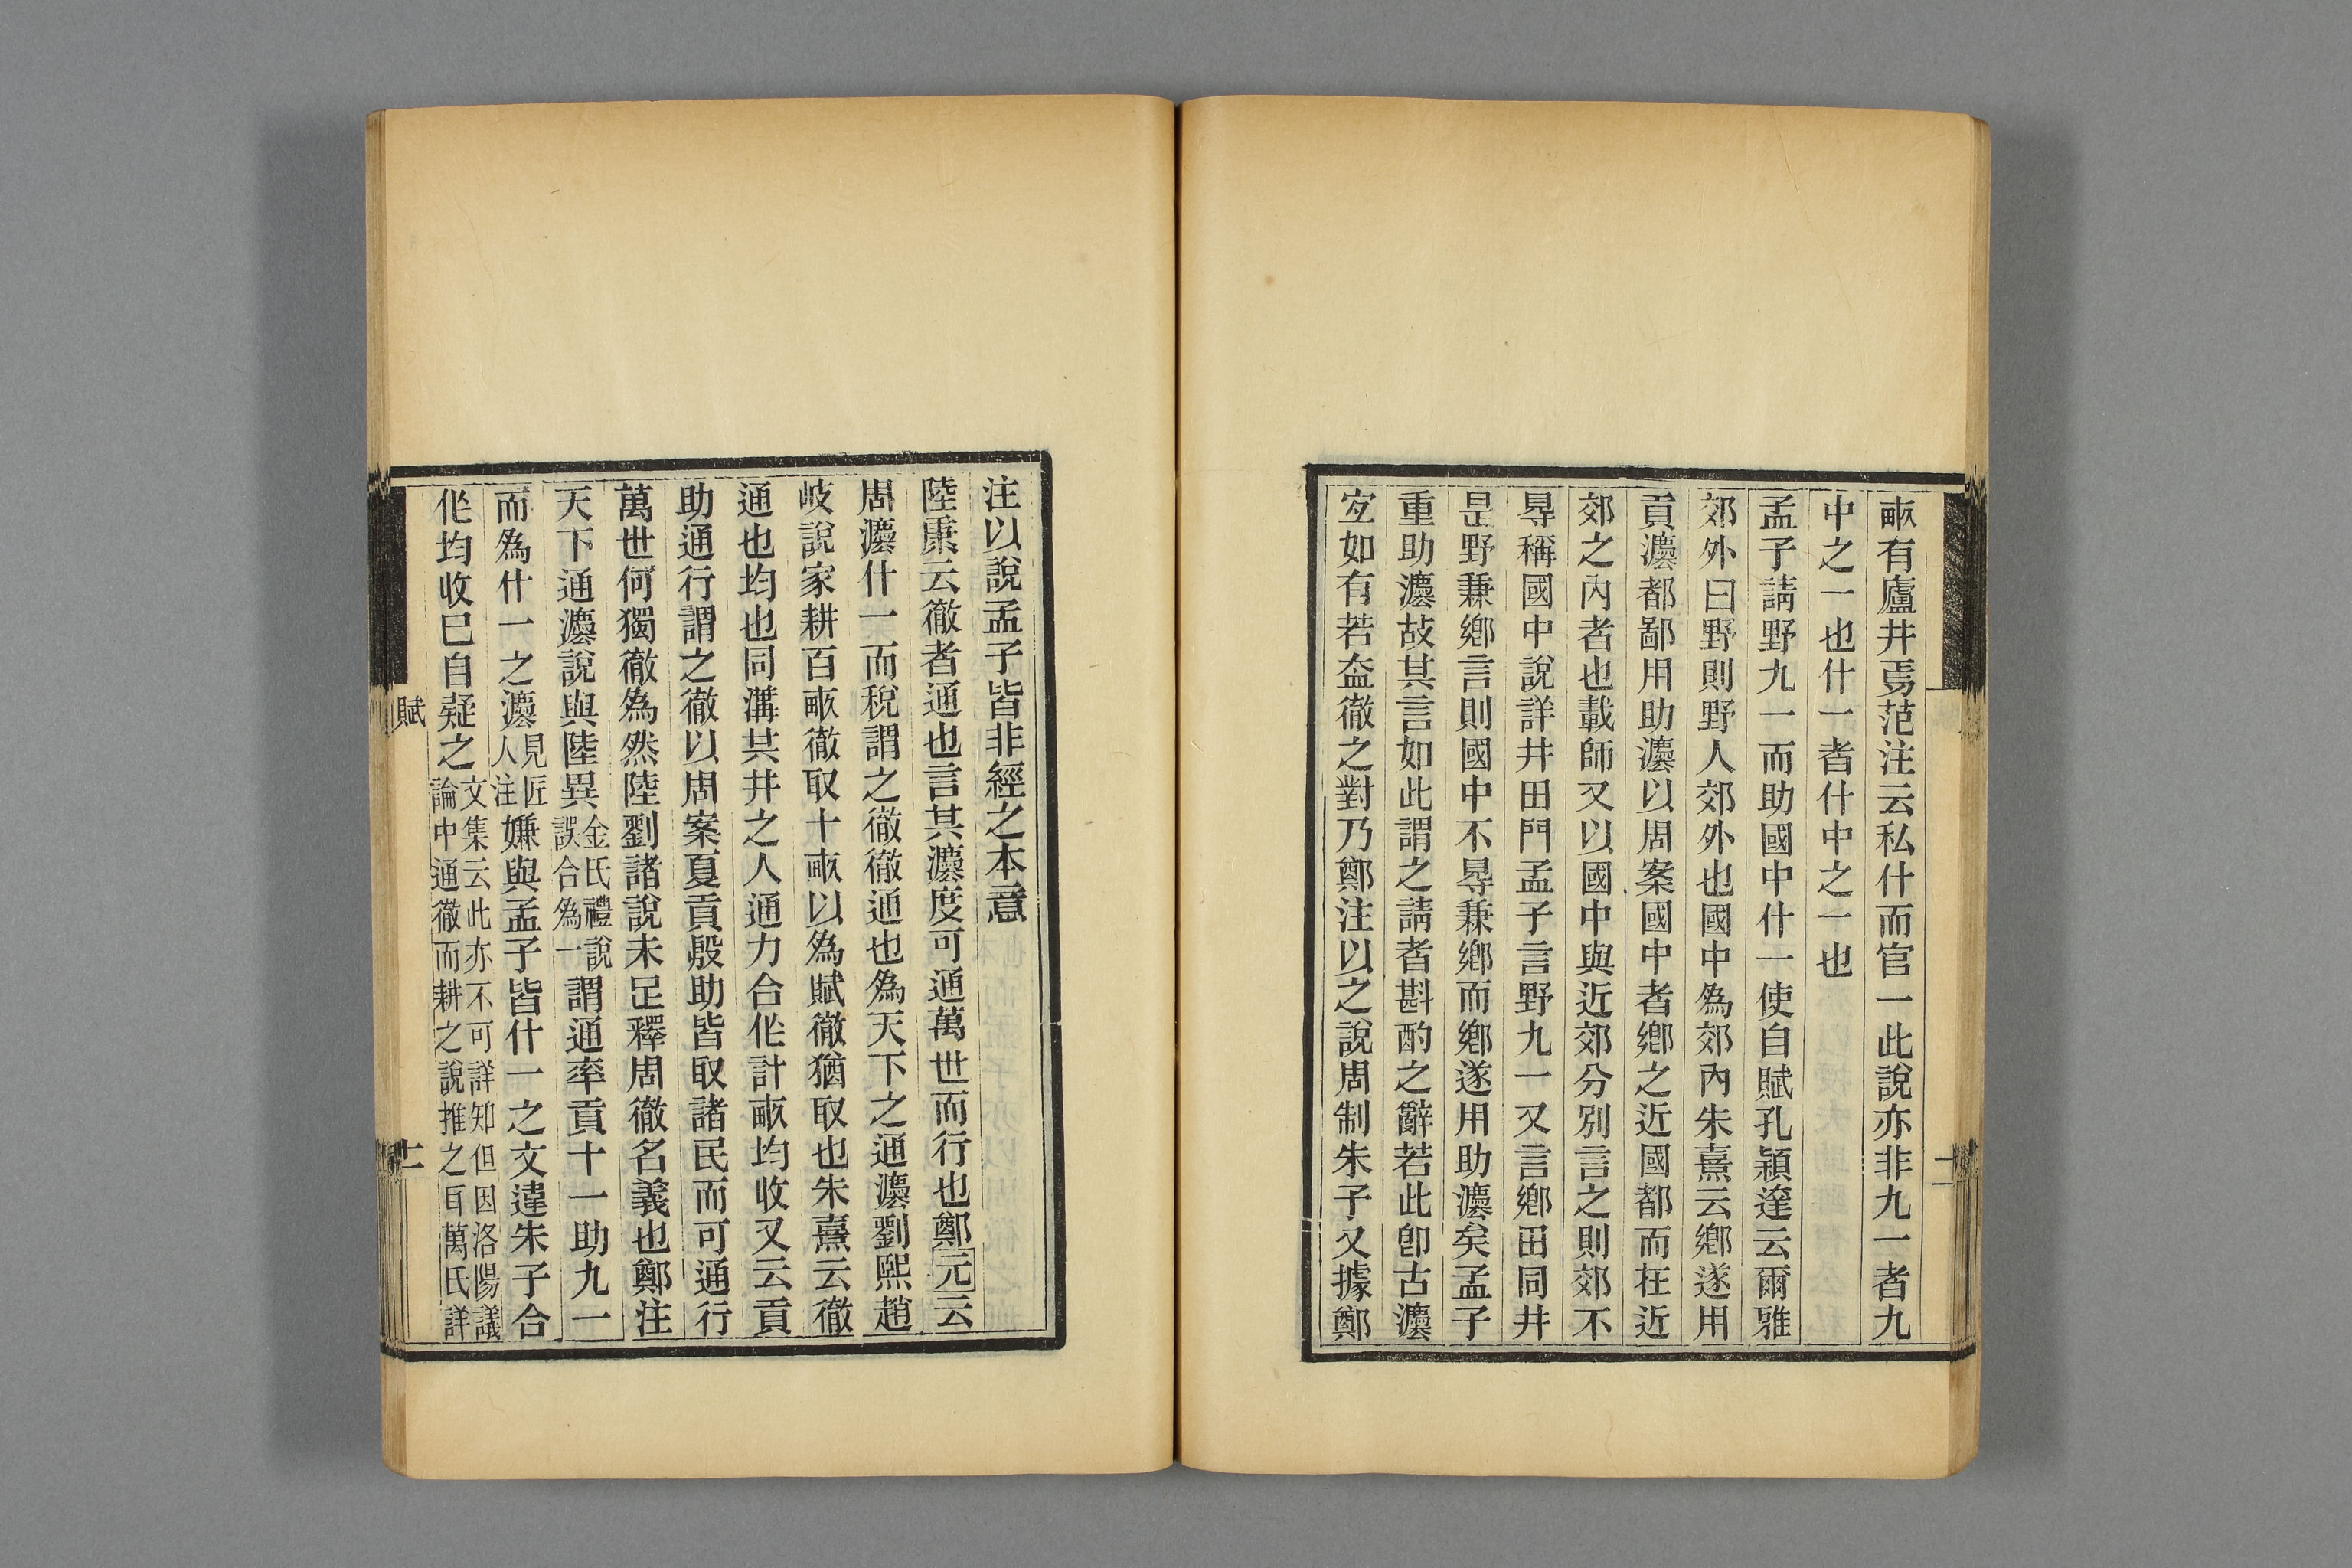 畞有廬井焉范注云私什而官一此說亦非九一者九
中之一也什一者什中之一也
孟子請野九一而助國中什一使自賦孔穎達云爾雅
郊外曰野則野人郊外也國中為郊內朱熹云鄉遂用
貢灋都鄙用助灋以周案國中者鄉之近國都而在近
郊之內者也載師又以國中與近郊分別言之則郊不
㝵稱國中說詳井田門孟子言野九一又言鄉田同井
是野兼鄉言則國中不㝵兼鄉而鄉遂用助灋矣孟子
重助灋故其言如此謂之請者斟酌之辭若此卽古灋
㝎如有若盇徹之對乃鄭注以之說周制朱子又據鄭
注以說孟子皆非經之本意
陸粛云徹者通也言其灋度可通萬世而行也鄭元云
周灋什一而稅謂之徹徹通也為天下之通灋劉熙趙
岐說家耕百畞徹取十畞以為賦徹猶取也朱熹云徹
通也均也同溝共井之人通力合作計畞均收又云貢
助通行謂之徹以周案夏貢殷助皆取諸民而可通行
萬世何獨徹為然陸劉諸說未足釋周徹名義也鄭注
天下通灋說與陸異金氏禮說誤合為一謂通率貢十一助九一
而為什一之灋見匠人注嫌與孟子皆什一之文違朱子合
作均收巳自疑之文集云此亦不可詳知但因洛陽議論中通徹而耕之說推之百萬氏詳
賦
十一